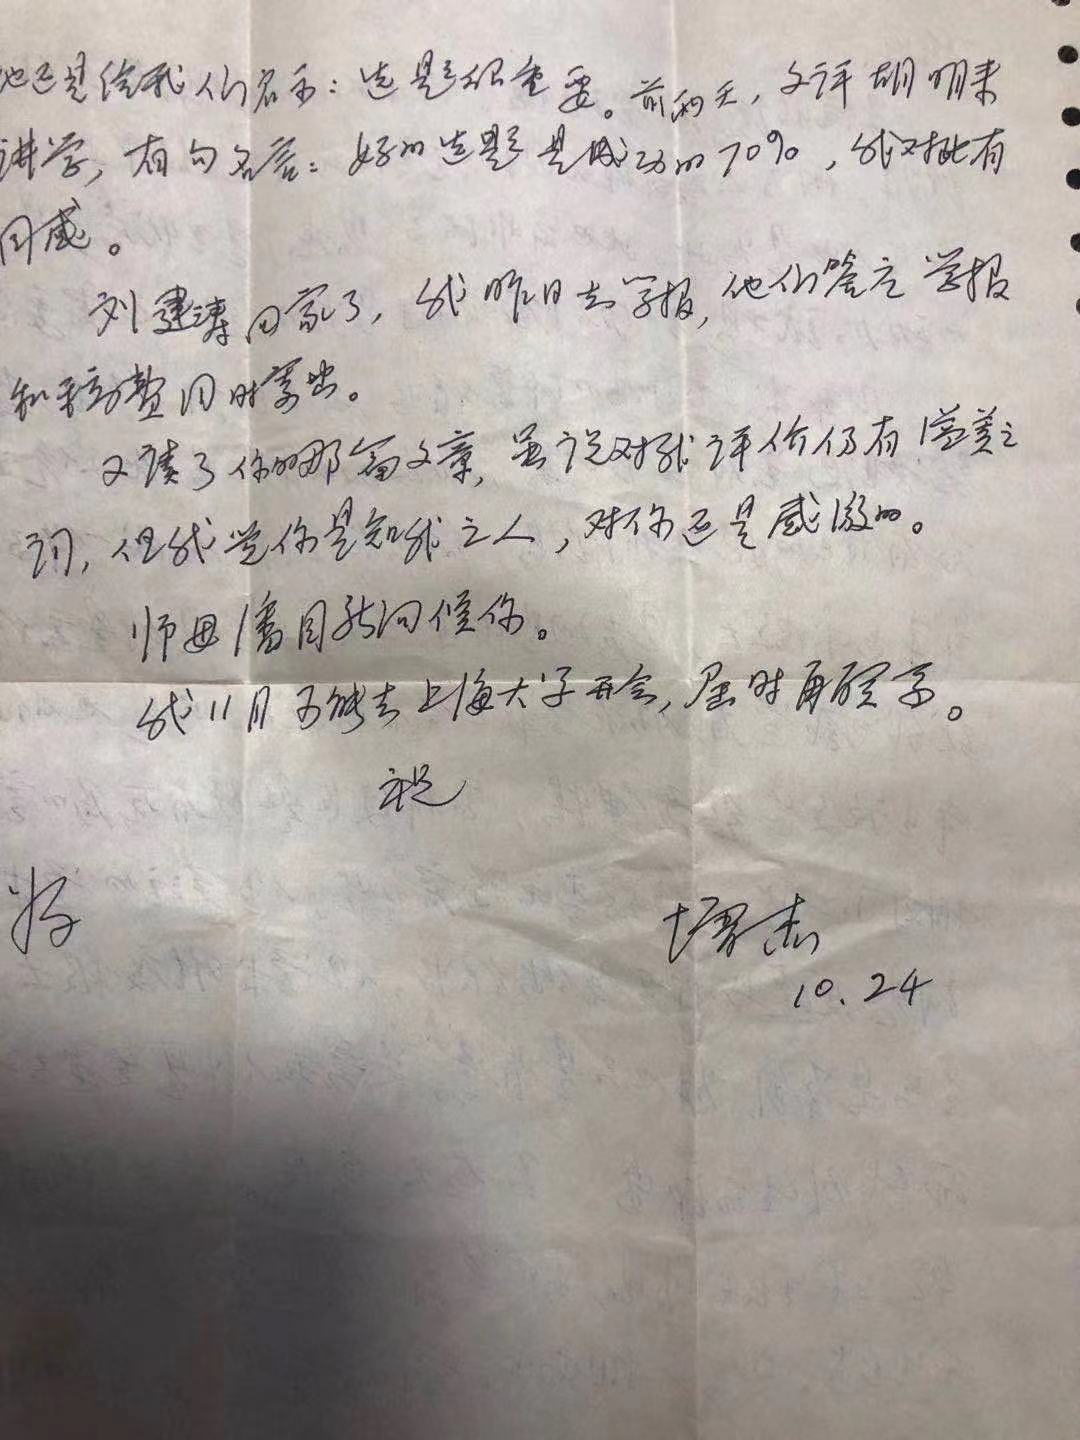 他还是给我们启示：选题很重要。前两天，文评胡明来
讲学，有句名言：好的选题是成功的70%，我对此有
同感。
刘建涛回家了，我昨日去学报，他们答应学报
和稿费同时寄出。
又读了你的那篇文章，虽说对我评价仍有溢美之
词，但我觉你是知我之人，对你还是感激的。
师母潘国新问候你。
我11月可能去上海大学开会，届时再联系。
祝
好
增杰
10.24